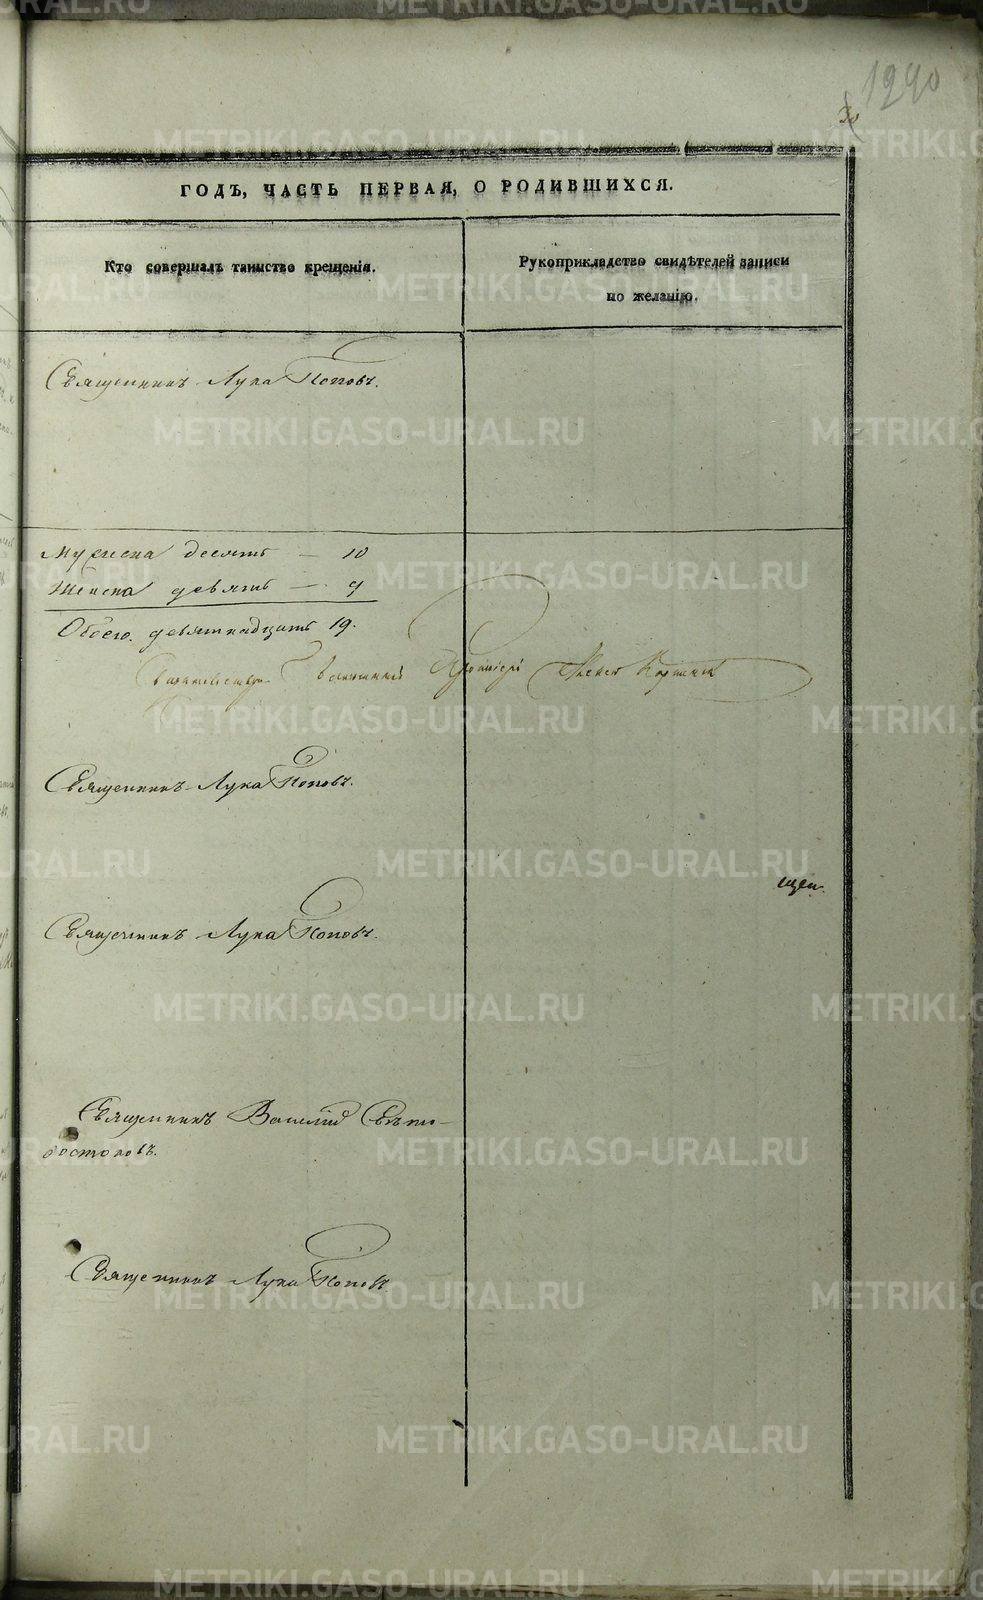 1290
ГОДЪ, ЧАСТЬ ПЕРВАЯ, О РОДИВШИХСЯ.
Кто совершалъ таинство крещенія.
Рукоприкладство свидѣтелей записи
по желанію.
Священникъ Лука Поповъ.
Мужеска десять — 10
Женска девять — 9
Обоего девятнадцать 19.
Священникъ Лука Поповъ.
Священникъ Лука Поповъ.
Священникъ Василій
Священникъ Лука Поповъ
METRIKI.GASO-URAL.RU